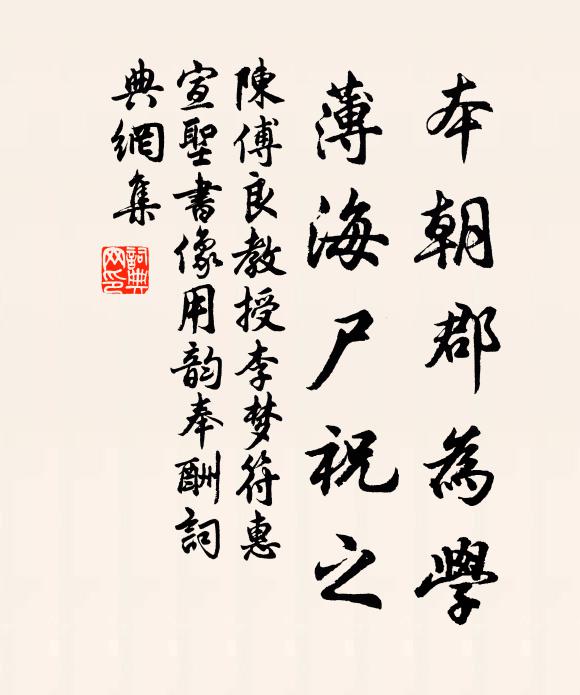 本朝郡為學
薄海尸祝之
陳傅良教授李梦符惠
宣聖書像用韵奉酬詞
典網集
詞典網印